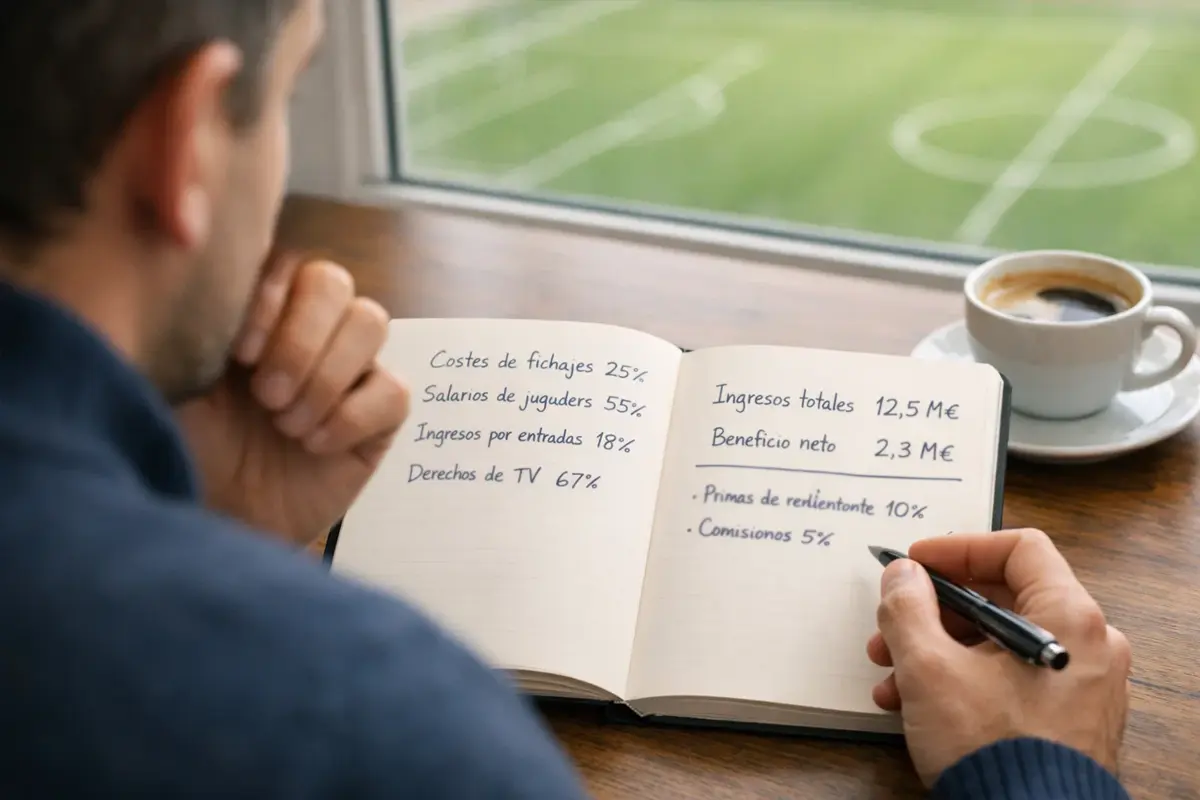 Costes de fichajes 25%
Salarios de juguders 55%
Ingresos por entradas 18%
Derechos de TV 67%
Ingresos totales 12,5 M€
Beneficio neto 2,3 M€
· Primas de 10%
· Comisionos 5%